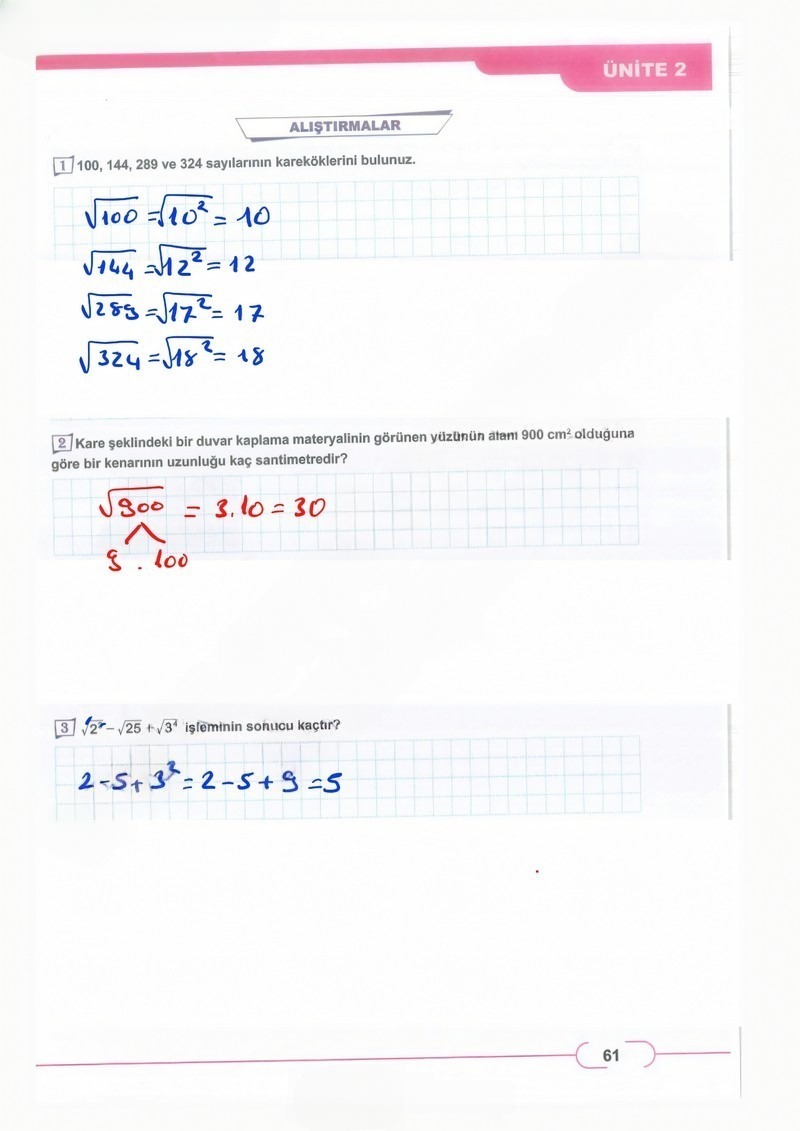 ÜNİTE 2
ALIŞTIRMALAR
1 100, 144, 289 ve 324 sayılarının kareköklerini bulunuz.
√100 = √10² = 10
√144 = √12² = 12
√289 = √17² = 17
√324 = √18² = 18
2 Kare şeklindeki bir duvar kaplama materyalinin görünen yüzünün alanı 900 cm² olduğuna
göre bir kenarının uzunluğu kaç santimetredir?
√900 = 3.10 = 30
9 . 100
3 √2² – √25 + √3⁴ işleminin sonucu kaçtır?
2 - 5 + 3² = 2 - 5 + 9 = 5
61